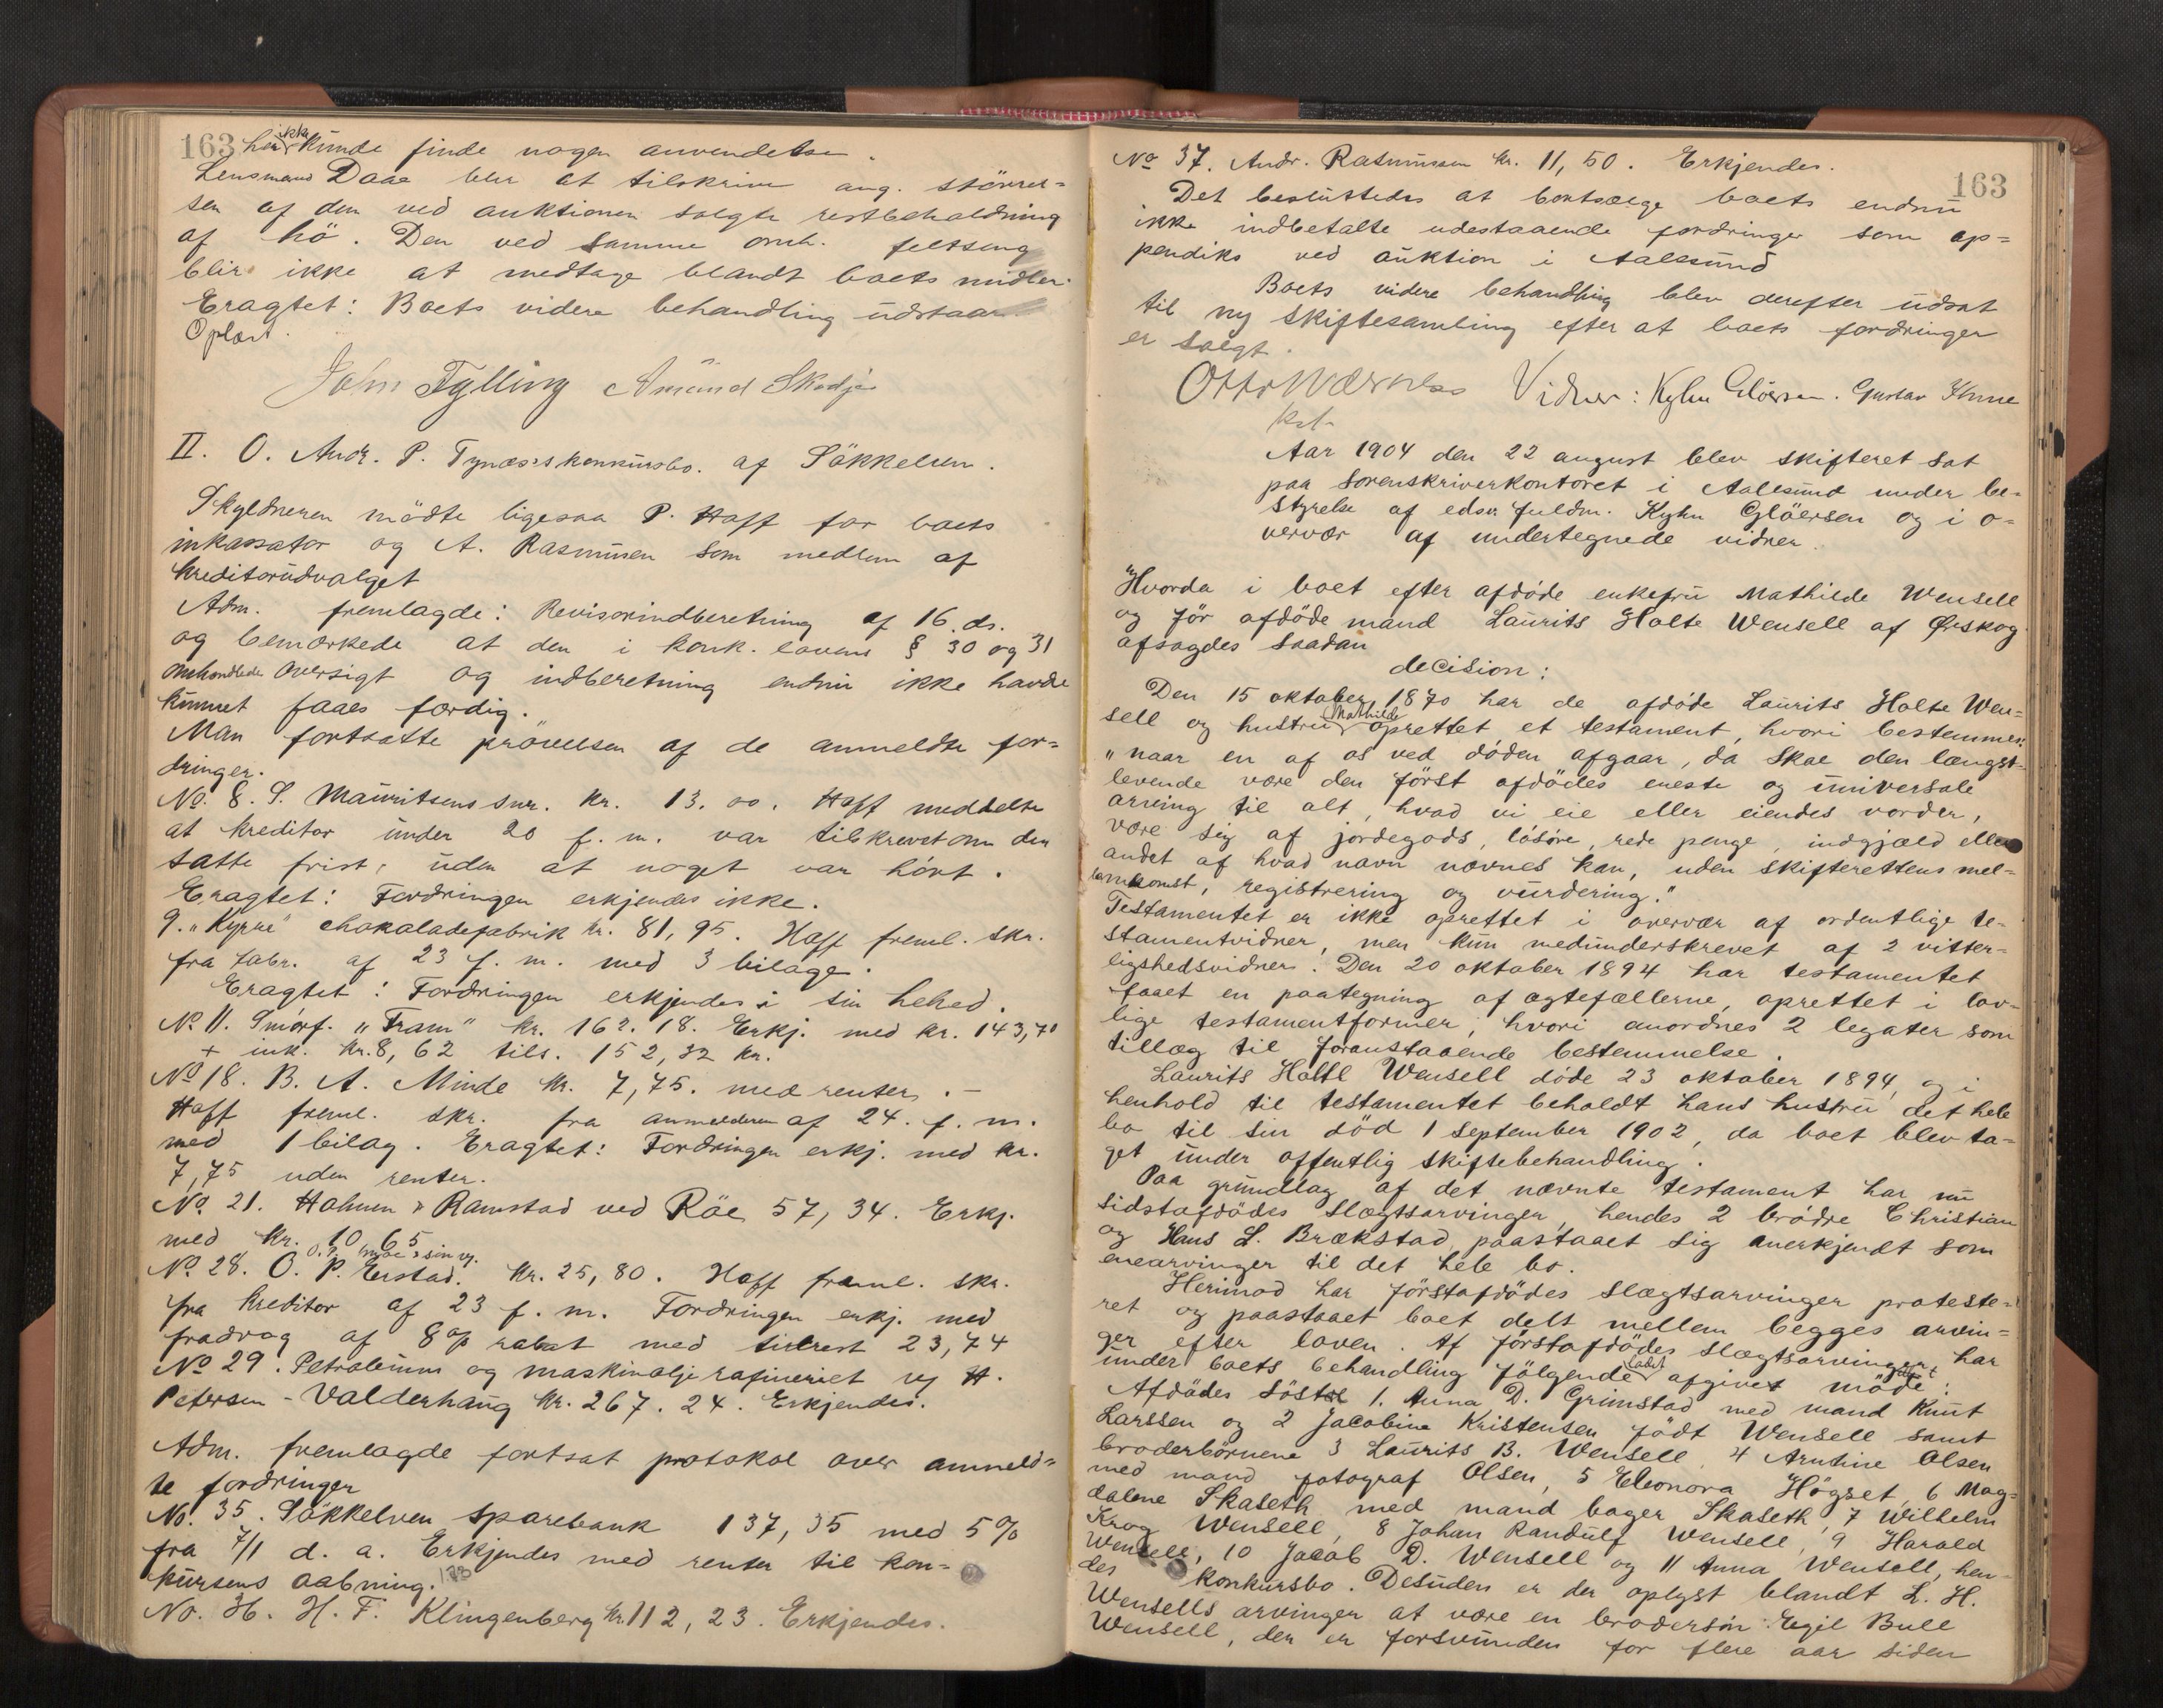 163 her ikke kunde finde nogen anvendelse.
Lensmand Daae blir at tilskrive ang. störrel=
sen af den ved auktionen solgte restbeholdning
af hö. Den ved samme omh. feltseng
blir ikke at medtage blandt boets midler.
Eragtet: Boets videre behandling udstaar
Oplæst.
John Tylling Amund Skodje
II. O. Andr. P. Tynæs's konkursbo. af Sökkelven.
Skyldneren mödte ligesaa P. Hoff for boets
inkassator og A. Rasmussen som medlem af
kreditorudvalget
Adm. fremlagde: Revisorindberetning af 16. ds.
og bemærkede at den i konk. lovens § 30 og 31
omhandlede oversigt og indberetning endnu ikke havde
kunnet faaes færdig.
Man fortsatte prövelsen af de anmeldte for=
dringer.
No. 8. S. Mauritsens Snr. kr. 13.00. Hoff meddelte
at kreditor under 20 f. m. var tilskrevet om den
satte frist, uden at noget var hört.
Eragtet: Fordringen erkjendes ikke.
9. "Kyrre" chokoladefabrik kr. 81,95. Hoff freml. skr.
fra fabr. af 23 f. m. med 3 bilage.
Eragtet: Fordringen erkjendes i sin helhed.
No 11. Smörf. "Fram" kr. 162.18. Erkj. med kr. 143,70
+ ink. kr. 8,62 tils. 152,32 kr.
No 18. B. A. Minde kr. 7,75. med renter. -
Hoff freml. skr. fra anmelderen af 24. f. m.
med 1 bilag. Eragtet: Fordringen erkj. med kr.
7,75 uden renter.
No 21. Holmen & Ramstad ved Röe 57,34. Erkj.
med kr. 10,65
No 28. O. P. Erstad. kr. 25,80. Hoff freml. skr.
fra kreditor af 23 f. m. Fordringen erkj. med
fradrag af 8 % rabat med tilrest 23,74
No 29. Petroleums og maskinoljerafineriet v/ H.
Petersen - Valderhaug kr. 267.24. Erkjendes.
Adm. fremlagde fortsat protokol over anmeld=
te fordringer
No. 35. Sökkelven sparebank 137,35 med 5%
fra 7/1 d. a. Erkjendes med renter til kon=
kursens aabning.
No. 36. H. F. Klingenberg kr. 112,23. Erkjendes.
No 37. Andr. Rasmussen kr. 11,50. Erkjendes.
163
Det besluttedes at bortsælge boets endnu
ikke indbetalte udestaaende fordringer som ap=
pendiks ved auktion i Aalesund
Boets videre behandling blev derefter udsat
til ny skiftesamling efter at boets fordringer
er solgt.
Otto Wærness Vidner: Kyhn Glöersen. Gustav
kst.
Aar 1904 den 22 august blev skifteret sat
paa sorenskriverkontoret i Aalesund under be=
styrelse af edsv. fuldm. Kyhn Glöersen og i o=
vervær af undertegnede vidner.
"Hvorda i boet efter afdöde enkefru Mathilde Wensell
og för afdöde mand Laurits Holte Wensell af Ørskog
afsagdes saadan
decision:
Den 15 oktober 1870 har de afdöde Laurits Holte Wen=
sell og hustru Mathilde oprettet et testament, hvori bestemmes:
"naar en af os ved döden afgaar, da skal den længst=
levende være den först afdödes eneste og universale
arving til alt, hvad vi eie eller eiendes vorder,
være sig af jordegods, lösöre, rede penge, indgjæld eller
andet af hvad navn nævnes kan, uden skifterettens mel=
lemkomst, registrering og vurdering."
Testamentet er ikke oprettet i overvær af ordentlige te=
stamentvidner, men kun medunderskrevet af 2 vitter=
lighedsvidner. Den 20 oktober 1894 har testamentet
faaet en paategning af ægtefællerne, oprettet i lov=
lige testamentformer, hvori anordnes 2 legater som
tillæg til foranstaaende bestemmelse.
Laurits Holte Wensell döde 23 oktober 1894, og i
henhold til testamentet beholdt hans hustru det hele
bo til sin död 1 september 1902, da boet blev ta=
get under offentlig skiftebehandling.
Paa grundlag af det nævnte testament har nu
sidstafdödes slægtsarvinger, hendes 2 brödre Christian
og Hans L. Brækstad, paastaaet sig anerkjendt som
enearvinger til det hele bo.
Herimod har förstafdödes slægtsarvinger proteste=
ret og paastaaet boet delt mellem begges arvin=
ger efter loven. Af förstafdödes slægtsarvinger har
under boets behandling fölgende ladet afgivet möde:
Afdödes söstre 1. Anna D. Grimstad med mand Knut
Larssen og 2 Jacobine Kristensen födt Wensell samt
broderbörnene 3 Laurits B. Wensell, 4 Arntine Olsen
med mand fotograf Olsen, 5 Eleonora Högset, 6 Mag=
dalene Skaseth med mand bager Skaseth, 7 Wilhelm
Krog Wensell, 8 Johan Randulf Wensell, 9 Harald
Wensell, 10 Jacob D. Wensell og 11 Anna Wensell, hen=
des konkursbo. Desuden er der oplyst blandt L. H.
Wensells arvinger at være en brodersön: Egil Bull
Wensell, der er forsvunden for flere aar siden